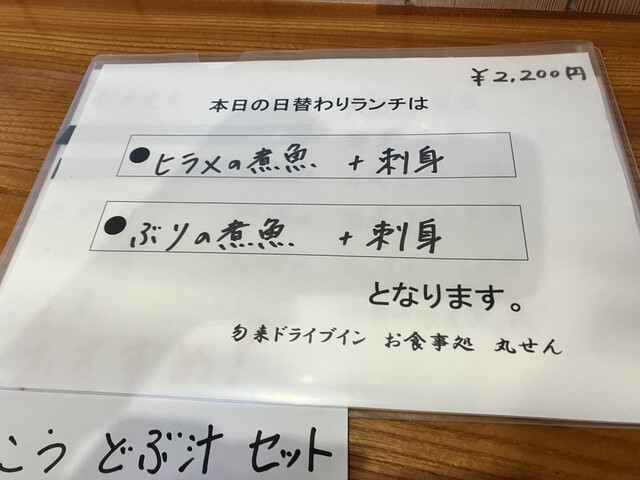 ¥2,200円
本日の日替わりランチは
●ヒラメの煮魚 + 刺身
●ぶりの煮魚 + 刺身
となります。
勿来ドライブイン お食事処 丸せん
こう どぶ汁 セット